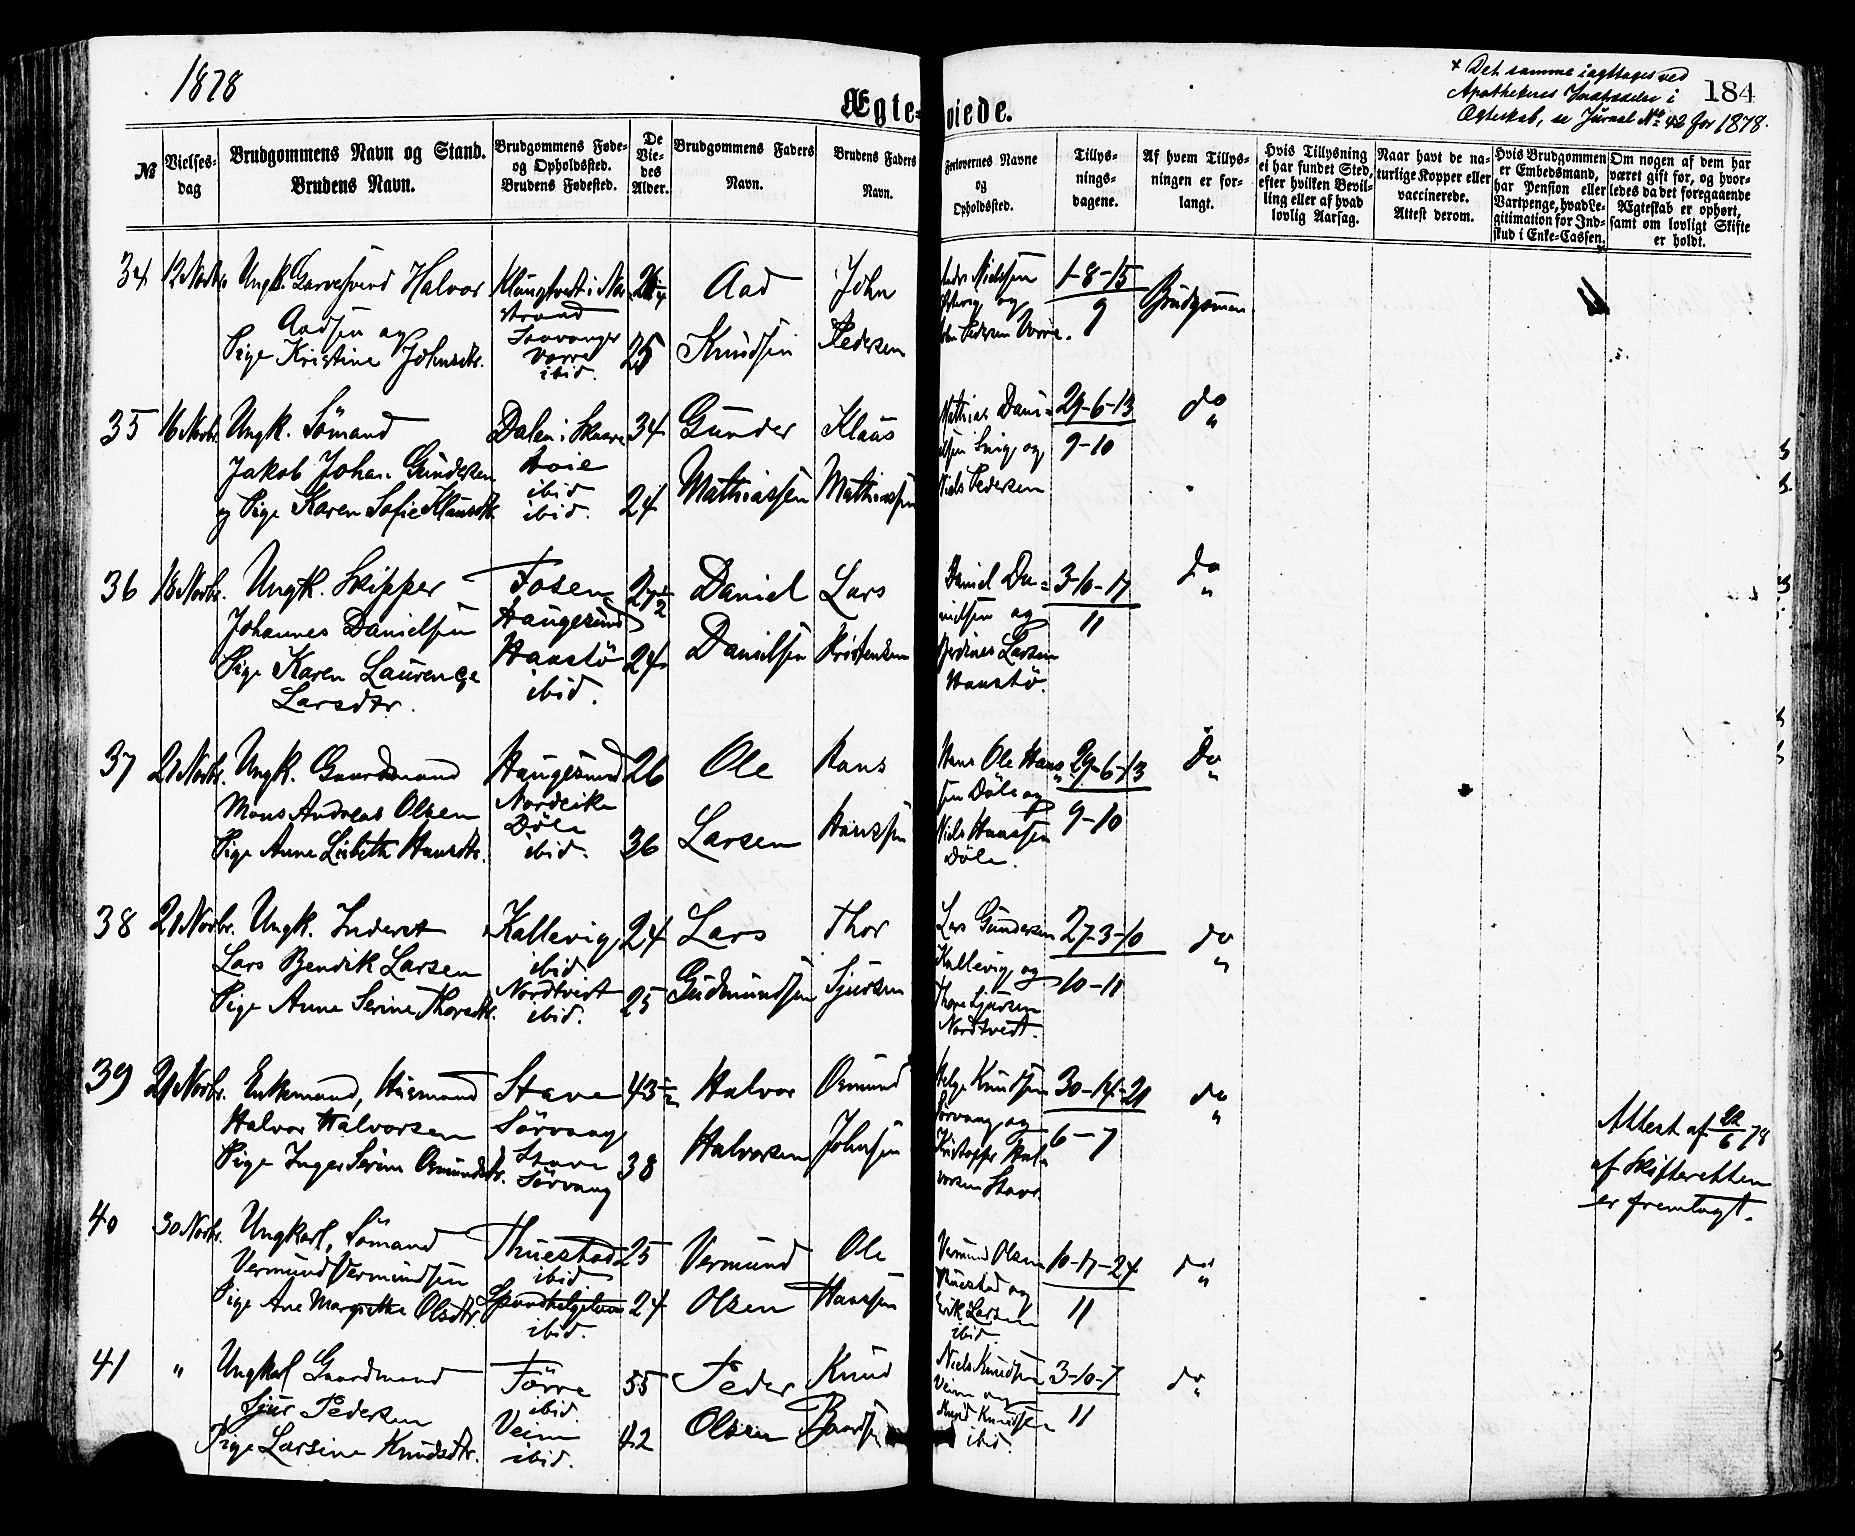 1878
Ægte-
viede.
+ Det samme iagttages ved
Apothekeres Indtrædelse i
Ægteskab, se Jurnal No 42 for 1878.
184
No
Vielses-
dag
Brudgommens Navn og Stand.
Brudens Navn.
Brudgommens Føde-
og Opholdssted.
Brudens Fødested.
De
Vie-
des
Alder.
Brudgommens Faders
Navn.
Brudens Faders
Navn.
Forlovernes Navne
og
Opholdssted.
Tillys-
nings-
dagene.
Af hvem Tillys-
ningen er for-
langt.
Hvis Tillysning
ei har fundet Sted,
efter hvilken Bevil-
ling eller af hvad
lovlig Aarsag.
Naar havt de na-
turlige Kopper eller
vaccinerede.
Attest derom.
Hvis Brudgommen
er Embedsmand,
har Pension eller
Vartpenge, hvad Le-
gitimation for Ind-
skud i Enke-Cassen.
Om nogen af dem har
været gift før, og hvor-
ledes da det foregaaende
Ægteskab er ophørt,
samt om lovligt Skifte
er holdt.
34 12 Novbr. Ungk. Garvesvend Halvor
Aadsen og
Pige Kristine Johnsdtr.
strand
Vorre
ibid.
25
Aad
Knudsen
John
Pedersen
Nielssen
og
Pedersen Vorre.
1-8-15
9
Brudgommen
35 16 Novbr. Ungk. Sömand
Jakob Johan Gundersen
og Pige Karen Sofie Klausdtr.
Dalen i Skaare
ibid
ibid.
34
24
Gunder
Mathiassen
Klaus
Mathiassen
Mathias Dani-
elsen og
Niels Pedersen
29-6-13
9-10
do
"
36 18 Novbr. Ungk. Skipper
Johannes Danielsen
Pige Karen Laurence
Larsdtr.
Fosen
Haugesund
Hanstö
ibid.
27 1/2
24
Daniel
Danielsen
Lars
Kristensen
Daniel Da-
nielsen og
Larsen
Hanstö.
3-10-17
11
do
"
37 21 Novbr. Ungk. Gaardmand
Mons Andreas Olsen
Pige Anne Lisbeth Hansdtr.
Haugesund
Nordeike
Döle
ibid.
26
36
Ole
Larsen
Hans
Hanssen
Hans Ole Hans
sen Döle og
Niels Hanssen
Döle.
29-6-13
9-10
do
"
38 21 Novbr. Ungk. Inderst
Lars Bendik Larsen
Pige Anne Serine Thorsdtr.
Kallevig
ibid
Nordtveit
ibid.
24
25
Lars
Gudmundsen
Thor
Sjursen
Lars Gundersen
Kallevig og
Thore Sjursen
Nordtveit.
27-3-10
10-11
do
"
39 21 Novbr. Enkemand, Husmand
Halvor Halvorsen
Pige Inger Serine Osmundsdtr.
Stave
Sörvaag
Stave
Sörvaag
43 1/2
38
Halvor
Halvorsen
Osmund
Johnsen
Helge Knudsen
Sörvaag og
Kristoffer Hal-
vorsen Stave
30-14-21
6-7
do
"
Attest af 78
af Skifteretten
er fremlagt.
40 30 Novbr. Ungkarl, Sömand
Vermund Vermundsen
Pige Ane Margrethe Olsdtr.
Thuestad
ibid
ibid.
25
24
Vermund
Olsen
Ole
Hanssen
Vermund Olsen
Thuestad og
Erik Larsen
ibid.
10-17-24
11
do
"
41 " Ungkarl Gaardmand
Sjur Pedersen
Pige Larsine Knudsdtr.
Förre
ibid
Veim
ibid.
55
42
Peder
Olsen
Knud
Baardsen
Niels Knudsen
Veim og
Knud Knudsen
ibid.
3-10-7
11
do
"